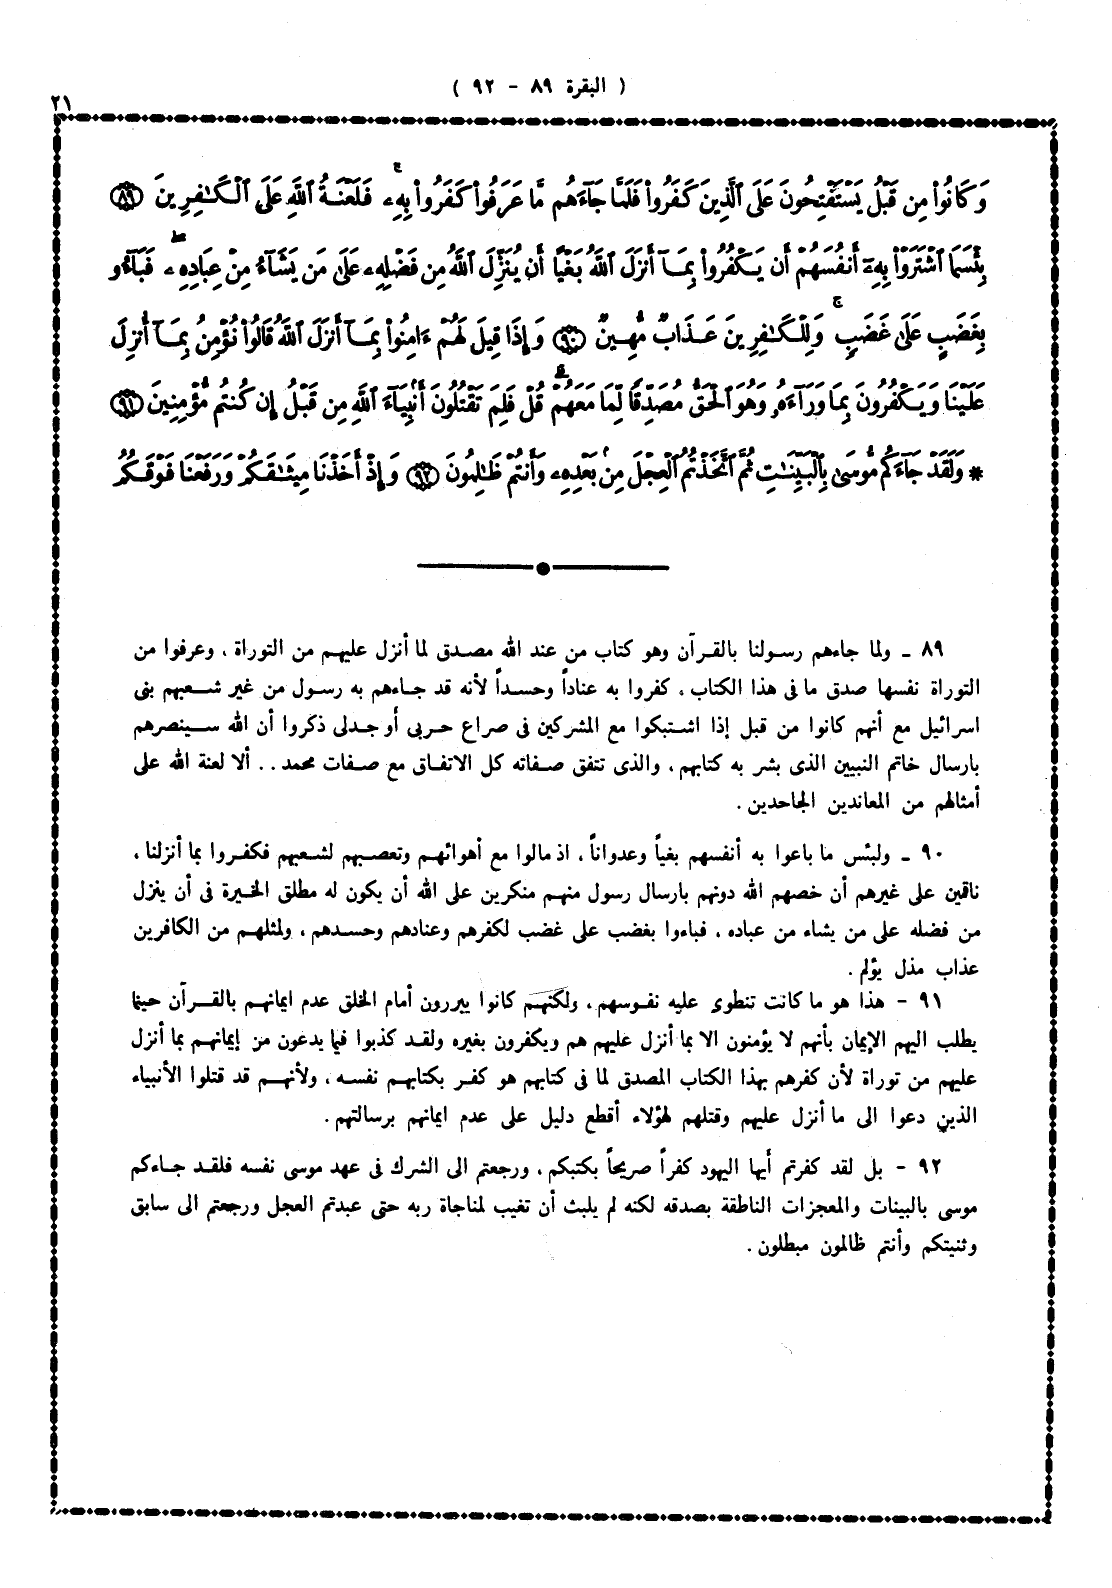 ( البقرة ٨٩ - ٩٢ )
٢١
وَكَانُواْ مِن قَبْلُ يَسْتَفْتِحُونَ عَلَى ٱلَّذِينَ كَفَرُواْ فَلَمَّا جَآءَهُم مَّا عَرَفُواْ كَفَرُواْ بِهِۦ ۚ فَلَعْنَةُ ٱللَّهِ عَلَى ٱلْكَٰفِرِينَ ٨٩
بِئْسَمَا ٱشْتَرَوْاْ بِهِۦٓ أَنفُسَهُمْ أَن يَكْفُرُواْ بِمَآ أَنزَلَ ٱللَّهُ بَغْيًا أَن يُنَزِّلَ ٱللَّهُ مِن فَضْلِهِۦ عَلَىٰ مَن يَشَآءُ مِنْ عِبَادِهِۦ ۖ فَبَآءُو
بِغَضَبٍ عَلَىٰ غَضَبٍ ۚ وَلِلْكَٰفِرِينَ عَذَابٌ مُّهِينٌ ٩٠ وَإِذَا قِيلَ لَهُمْ ءَامِنُواْ بِمَآ أَنزَلَ ٱللَّهُ قَالُواْ نُؤْمِنُ بِمَآ أُنزِلَ
عَلَيْنَا وَيَكْفُرُونَ بِمَا وَرَآءَهُۥ وَهُوَ ٱلْحَقُّ مُصَدِّقًا لِّمَا مَعَهُمْ ۗ قُلْ فَلِمَ تَقْتُلُونَ أَنۢبِيَآءَ ٱللَّهِ مِن قَبْلُ إِن كُنتُم مُّؤْمِنِينَ ٩١
* وَلَقَدْ جَآءَكُم مُّوسَىٰ بِٱلْبَيِّنَٰتِ ثُمَّ ٱتَّخَذْتُمُ ٱلْعِجْلَ مِنۢ بَعْدِهِۦ وَأَنتُمْ ظَٰلِمُونَ ٩٢ وَإِذْ أَخَذْنَا مِيثَٰقَكُمْ وَرَفَعْنَا فَوْقَكُمُ
٨٩ ـ ولما جاءهم رسولنا بالقرآن وهو كتاب من عند الله مصدق لما أنزل عليهم من التوراة ، وعرفوا من
التوراة نفسها صدق ما فى هذا الكتاب ، كفروا به عناداً وحسداً لأنه قد جاءهم به رسول من غير شعبهم بنى
اسرائيل مع أنهم كانوا من قبل إذا اشتبكوا مع المشركين فى صراع حربى أو جدلى ذكروا أن الله سينصرهم
بارسال خاتم النبيين الذى بشر به كتابهم ، والذى تتفق صفاته كل الاتفاق مع صفات محمد . . ألا لعنة الله على
أمثالهم من المعاندين الجاحدين .
٩٠ ـ ولبئس ما باعوا به أنفسهم بغياً وعدواناً ، اذ مالوا مع أهوائهم وتعصبهم لشعبهم فكفروا بما أنزلنا ،
ناقين على غيرهم أن خصهم الله دونهم بارسال رسول منهم منكرين على الله أن يكون له مطلق الخيرة فى أن ينزل
من فضله على من يشاء من عباده ، فباءوا بغضب على غضب لكفرهم وعنادهم وحسدهم ، ولمثلهم من الكافرين
عذاب مذل يؤلم .
٩١ - هذا هو ما كانت تنطوى عليه نفوسهم ، ولكنهم كانوا يبررون أمام الخلق عدم ايمانهم بالقرآن حينما
يطلب اليهم الإيمان بأنهم لا يؤمنون الا بما أنزل عليهم هم ويكفرون بغيره ولقد كذبوا فيما يدعون من إيمانهم بما أنزل
عليهم من توراة لأن كفرهم بهذا الكتاب المصدق لما فى كتابهم هو كفر بكتابهم نفسه ، ولأنهم قد قتلوا الأنبياء
الذين دعوا الى ما أنزل عليهم وقتلهم لهؤلاء أقطع دليل على عدم ايمانهم برسالتهم .
٩٢ - بل لقد كفرتم أيها اليهود كفراً صريحاً بكتبكم ، ورجعتم الى الشرك فى عهد موسى نفسه فلقد جاءكم
موسى بالبينات والمعجزات الناطقة بصدقه لكنه لم يلبث أن تغيب لمناجاة ربه حتى عبدتم العجل ورجعتم الى سابق
وثنيتكم وأنتم ظالمون مبطلون .